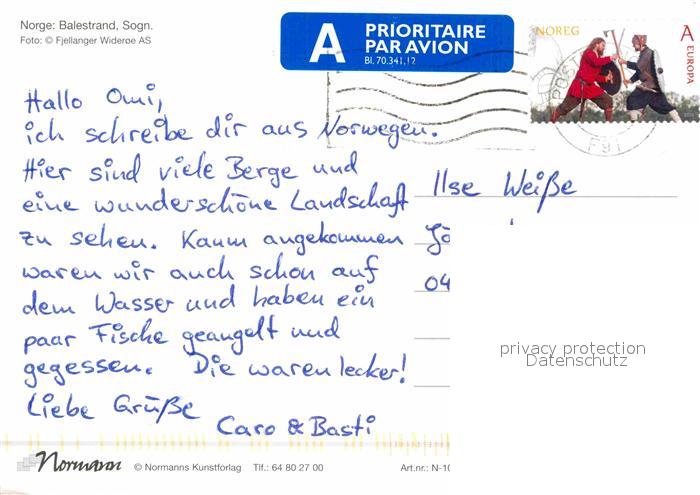 Norge: Balestrand, Sogn.
Foto: © Fjellanger Widerøe AS
A PRIORITAIRE
PAR AVION
Bl. 70.341.12
NOREG A
EUROPA
POST
Hallo Omi,
ich schreibe dir aus Norwegen.
Hier sind viele Berge und
eine wunderschöne Landschaft
zu sehen. Kaum angekommen
waren wir auch schon auf
dem Wasser und haben ein
paar Fische geangelt und
gegessen. Die waren lecker!
Liebe Grüße
Caro & Basti
Ilse Weiße
04
privacy protection
Datenschutz
Normann © Normanns Kunstforlag Tlf.: 64 80 27 00 Art.nr.: N-10